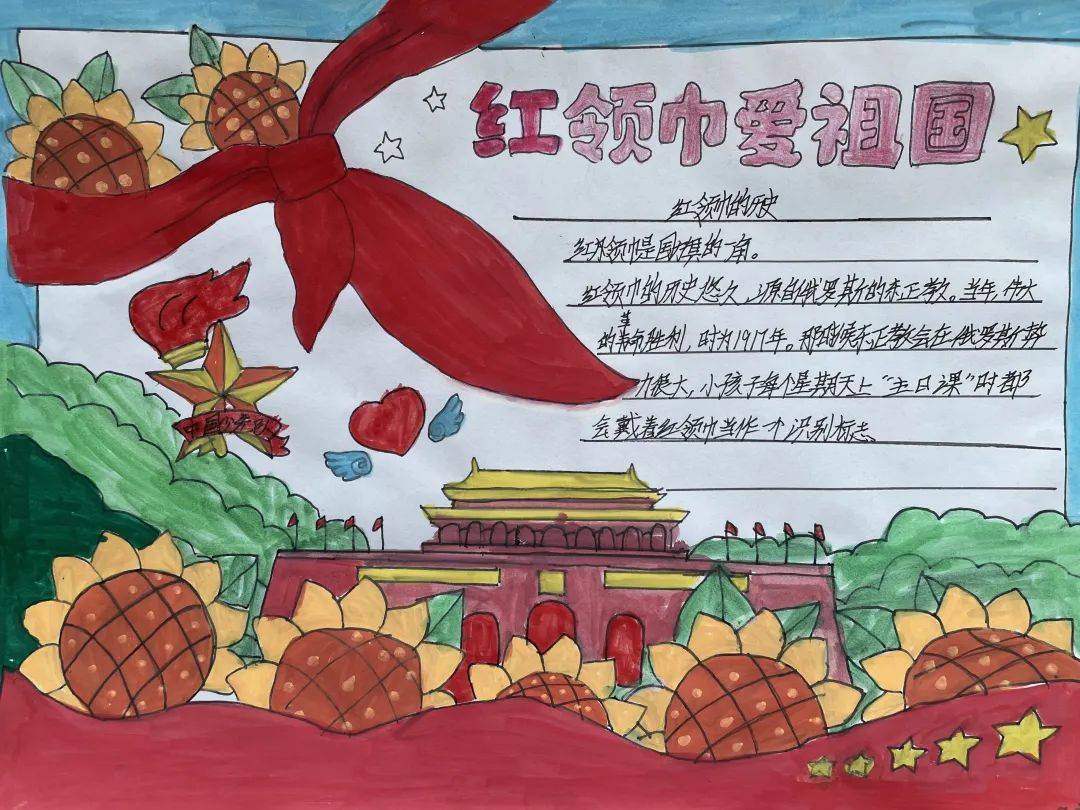 红领巾爱祖国
红领巾的历史
红领巾是国旗的一角。
红领巾的历史悠久，源自俄罗斯的东正教。当年，伟大
的革命胜利，时为1917年。那时候东正教会在俄罗斯势
力庞大，小孩子每个星期天上“主日课”时都
会戴着红领巾当作一个识别标志
中国少先队